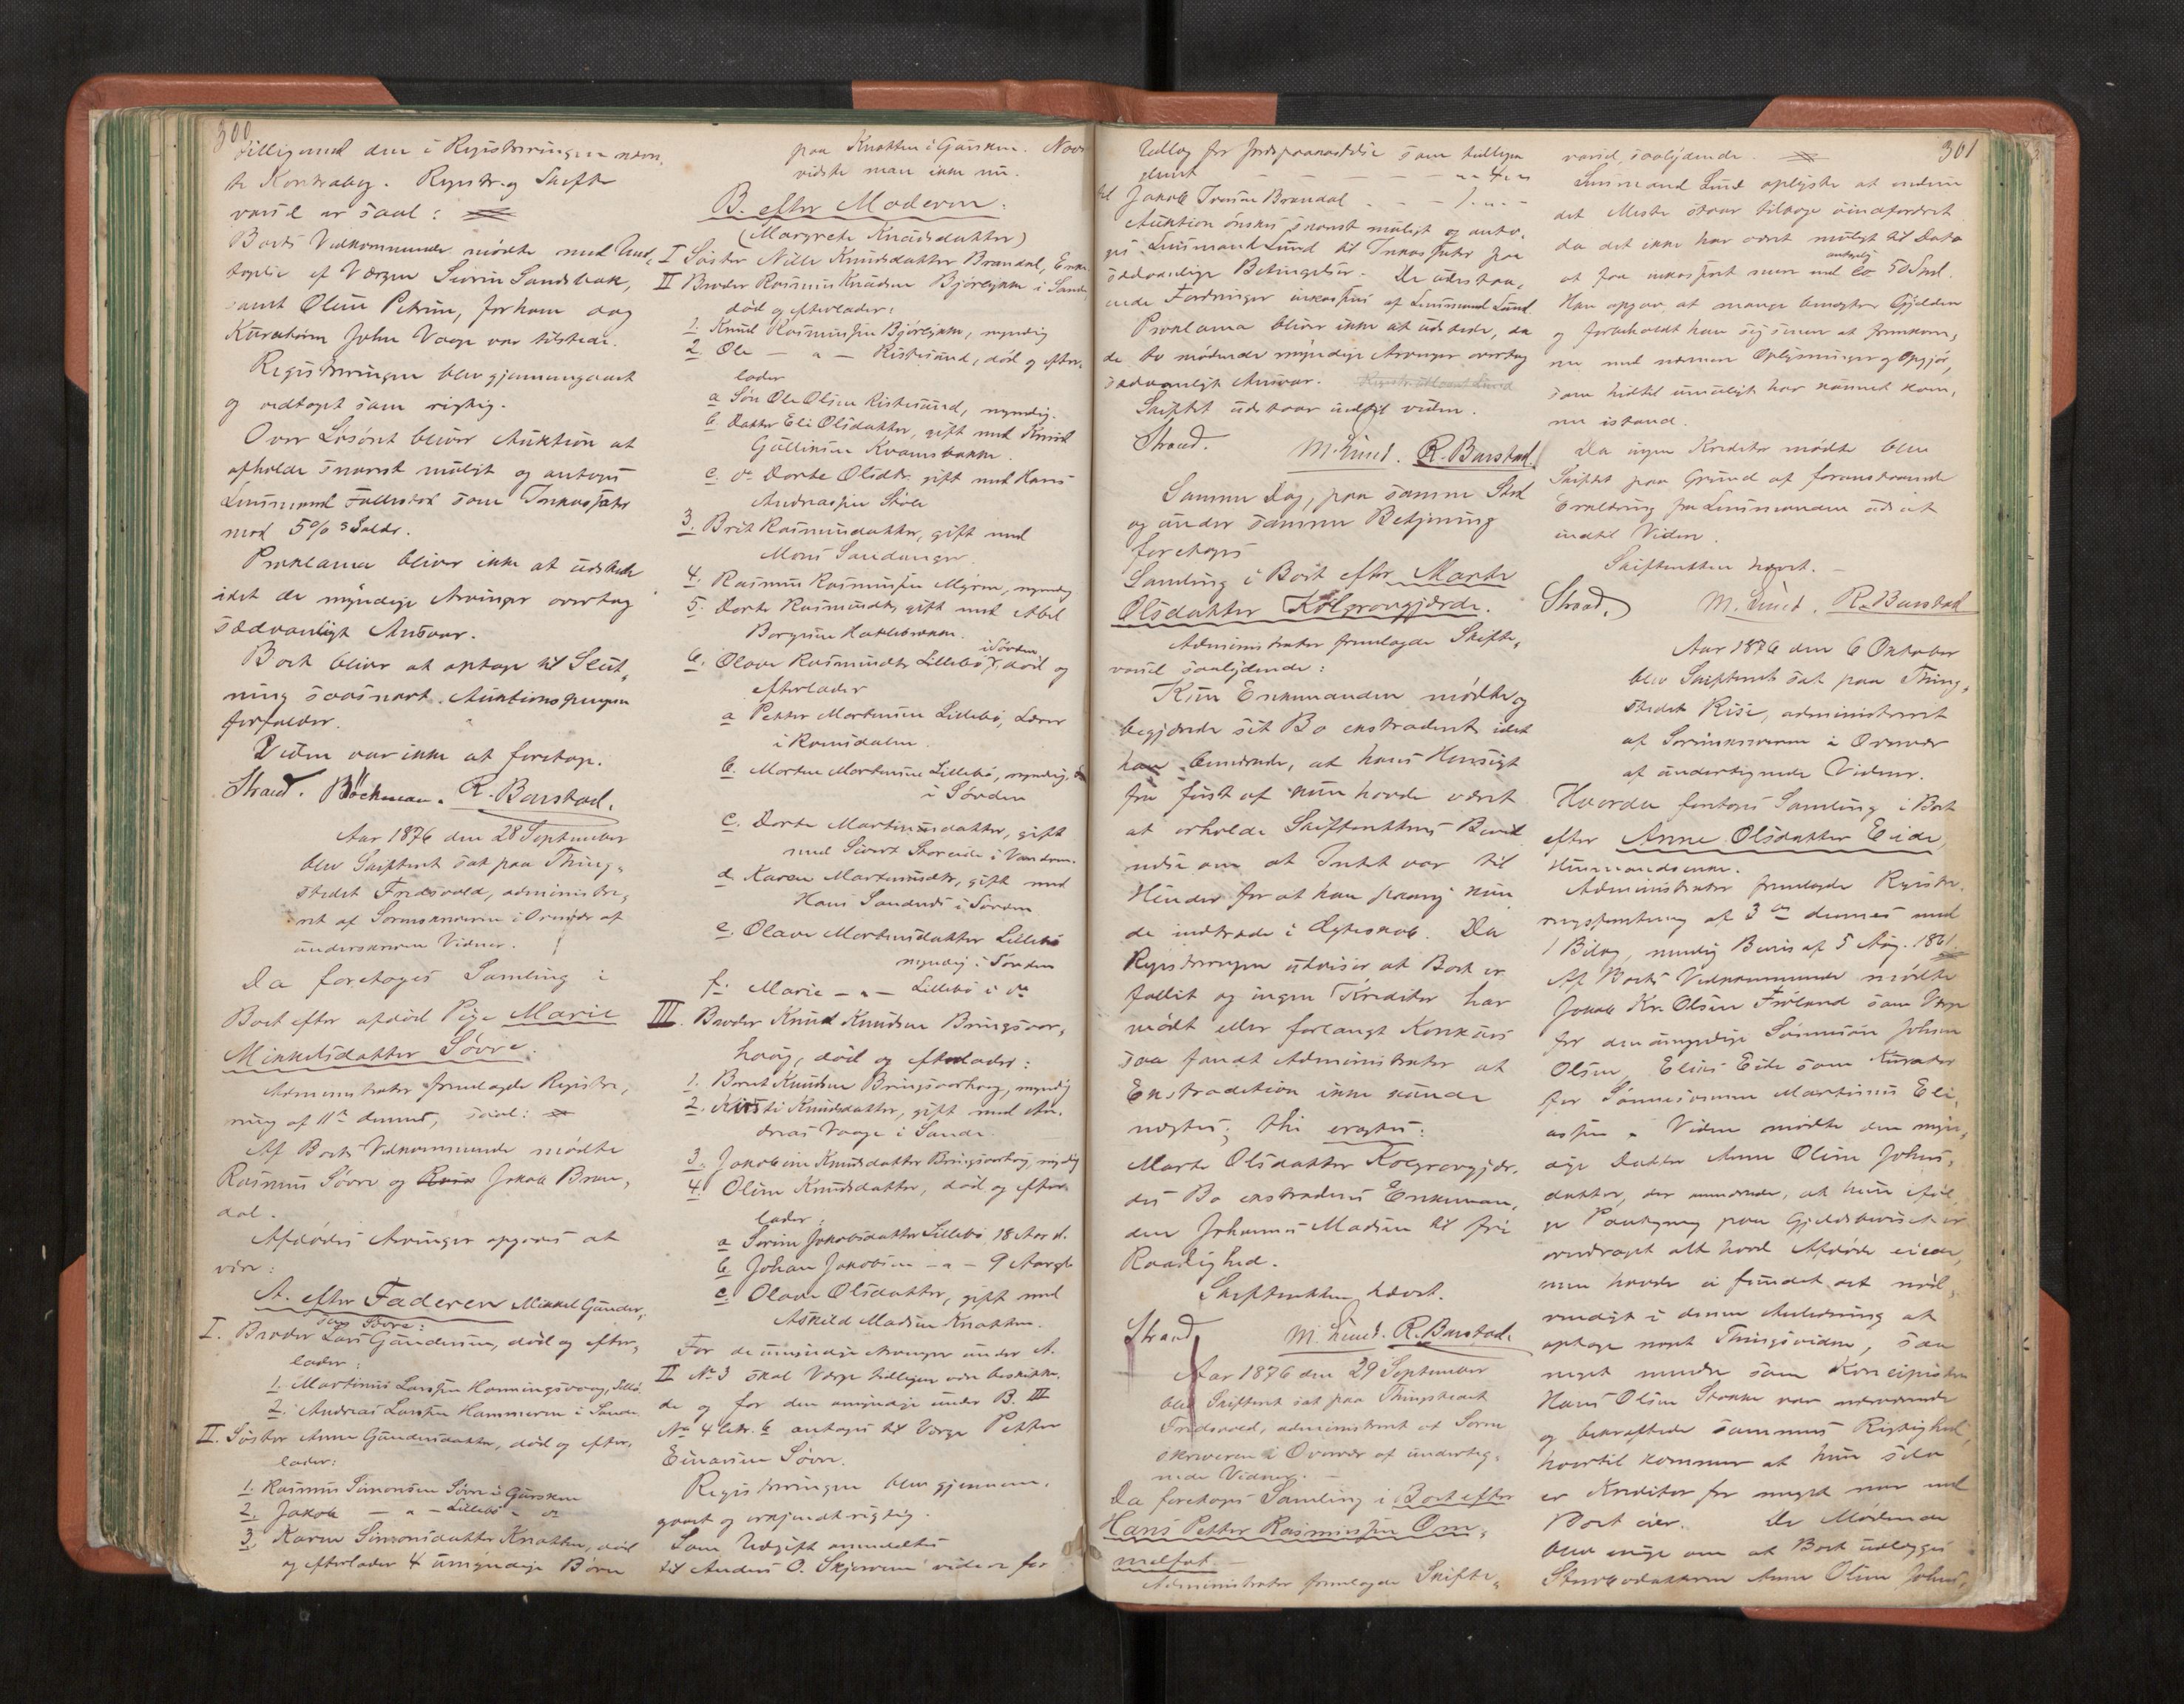 300
tilligemed den i Registreringen nævn,
te Kontrabog. Registr. og Skifte
varsel er saal:
Boets Vedkommende mødte med Und,
tagelse af Værgen Severin Sandsbak,
samt Oline Petrine, for hvem dog
Kuratoren John Vaage var tilstede.
Registreringen blev gjennemgaaet
og vedtaget som rigtig.
Over Løsøret bliver Auktion at
afholde snarest muligt og antages
Lensmand som Inkassator
mod 5%
Proklama bliver ikke at udstede
idet de myndige Arvinger overtog
sædvanligt Ansvar.
Boet bliver at optage til Slut,
ning saasnart Auktionspengene
forfalder.
Videre var ikke at foretage.
Strand. Böckman. R. Barstad.
Aar 1876 den 28 September
blev Skifteret sat paa Thing,
stedet Fredsvold, administre,
ret af Sorenskriveren i Overvær af
underskrevne Vidner.
Da foretoges Samling i
Boet efter afdød Pige Marie
Mikkelsdatter Søvre.
Administrator fremlagde Registre,
ring af 11te dennes, saal:
Af Boets Vedkommende mødte
Rasmus Søvre og Jakob Bran,
dal.
Afdødes Arvinger opgaves at
være:
A. efter Faderen Mikkel Gunder,
sen Søvre:
I. Broder Lars Gundersen, død og efter,
lader:
1. Martinus Larssen
2. Andreas Larssen Hammeren i Sande
II. Søster Anne Gundersdatter, død og efter,
lader:
1. Rasmus Simonsen Søvre i Gursken
2. Jakob — " — Lillebø " do
3. Karen Simonsdatter Knotten, død
og efterlader 4 umyndige Børn
paa Knotten i Gursken. Navne
vidste man ikke nu.
B. efter Moderen.
(Margrete Knudsdatter)
I Søster Nille Knudsdatter Brandal, Enke
II Broder Rasmus Knudsen Bjørlykke i Sande,
død og efterlader:
1. Knud Rasmussen Bjørlykke, myndig
2. Ole — " — Ristesund, død og efter,
lader
a Søn Ole Olsen Ristesund, myndig.
b. Datter Eli Olsdatter, gift med Knud
Gulliksen Kvamsbakke.
c. do Dorte Olsdtr. gift med Hans
Andreassen Støle
3. Brit Rasmusdatter, gift med
Mons Sandanger.
4. Rasmus Rasmussen Myren, myndig
5. Dorte Rasmusdtr, gift med Abel
Borgesen Haklebakke.
6. Olave Rasmusdtr Lillebø i Søvden, død og
efterlader
a Petter Mortensen Lillebø, Lærer
i Romsdalen.
b. Morten Mortensen Lillebø, myndig,
i Søvden
c. Dorte Martinusdatter, gift
med Sivert Storeide i Vandven.
d. Karen Martinusdtr, gift med
Hans Sandnes i Søvden
e. Olave Mortensdatter Lillebø
myndig i Søvden
f. Marie — " — Lillebø i do
III. Broder Knud Knudsen Bringsvor,
houg, død og efterlader:
1. Bernt Knudsen Bringsvorhoug, myndig
2. Kirsti Knudsdatter, gift med An,
dreas Vaage i Sande.
3. Jakobine Knudsdatter Bringsvorhoug, myndig
4. Oline Knudsdatter, død og efter
lader:
a Serine Jakobsdatter Lillebø 18 Aar gl.
b. Johan Jakobsen — " — 9 Aar gl.
c. Olave Olsdatter, gift med
Askild Madsen Knotten.
For de umyndige Arvinger under A.
II No 3 skal Værge tidligere være beskikke,
de og for den umyndige under B. III
No 4 litr. b antages til Værge Petter
Einarsen Søvre.
Registreringen blev gjennem,
gaaet og erkjendt rigtig.
Som Udgift anmeldtes
til Anders O. Skjervene videre for
301
Udlæg for Jordpaakastelse som tidligere
glemt — — — — — " 4 " "
til Jakob Iversen Brandal — — — 1. " . -
Auktion ønskes snarest muligt og anta,
ges Lensmand Lund til Inkassator paa
sædvanlige Betingelser. De udestaa,
ende Fordringer inkasseres af Lensmand Lund.
Proklama bliver ikke at udstede, da
de to mødende myndige Arvinger overtog
sædvanligt Ansvar.
Skiftet udstaar indtil videre.
Strand. M. Lund. R. Barstad.
Samme Dag, paa samme Sted
og under samme Betjening
foretoges
Samling i Boet efter Marte
Olsdatter Kolgrovgjerde.
Administrator fremlagde Skifte,
varsel saalydende:
Kun Enkemanden mødte og
begjærede sit Bo ekstraderet idet
han bemærkede, at hans Hensigt
fra først af kun havde været
at erholde Skifterettens Bevid
nelse om at Intet var til
Hinder for at han paany kun
de indtræde i Ægteskab. Da
Registreringen udviser at Boet er
fallit og ingen Kreditor har
mødt eller forlangt Konkurs
saa fandt Administrator at
Ekstradition ikke kunde
nægtes; thi eragtes:
Marte Olsdatter Kolgrovgjer,
des Bo ekstraderes Enkeman,
den Johannes Madsen til fri
Raadighed.
Skifteretten hævet.
Strand M. Lund. R. Barstad.
Aar 1876 den 29 September
blev Skifteret sat paa Thingstedet
Fredsvold, administreret af Soren
skriveren i Overvær af underteg,
nede Vidner.
Da foretoges Samling i Boet efter
Hans Petter Rasmussen Om,
melfot
Administrator fremlagde Skifte,
varsel, saalydende.
Lensmand Lund oplyste at endnu
det Meste staar tilbage uindfordret
da det ikke har været muligt til Dato
at faa inkasseret mere end antagelig 50 Spd.
Han opgav, at mange benægter Gjælden
og forbeholdt han sig senere at fremkom,
me med nærmere Oplysninger og Opgjør,
som hidtil umuligt har kunnet kom,
me istand.
Da ingen Kreditor mødte blev
Skiftet paa Grund af foranstaaende
Erklæring fra Lensmanden udsat
indtil Videre.
Skifteretten hævet. —
Strand, M. Lund. R. Barstad
Aar 1876 den 6 Oktober
blev Skifteret sat paa Thing,
stedet Rise, administreret
af Sorenskriveren i Overvær
af undertegnede Vidner.
Hvorda foretoges Samling i Boet
efter Anne Olsdatter Eide,
Husmandsenke.
Administrator fremlagde Registre,
ringsforretning af 3die dennes med
1 Bilag, nemlig Bevis af 5 Aug. 1861
Af Boets Vedkommende mødte
Jakob Kr. Olsen Frøland som Værge
for den umyndige Sønnesøn Johan
Olsen, Elias Eide som Kurator
for Sønnesønnen Martinus Eli,
assen. Videre mødte den myn,
dige Datter Anne Oline Johns,
datter, der anmærkede, at hun iføl,
ge Paategning paa Gjeldsbeviset er
overdraget alt hvad Afdøde eiede,
men havde ei fundet det nød,
vendigt i denne Anledning at
optage noget Thingsvidne, saa
meget mindre som Koncipisten
Hans Olsen Stokke var nærværende
og bekræftede sammes Rigtighed,
hvortil kommer at hun selv
er Kreditor for meget mer end
Boet eier. De Mødende
blev enige om at Boet udlægges
Stervbodatteren Anne Oline Johns,